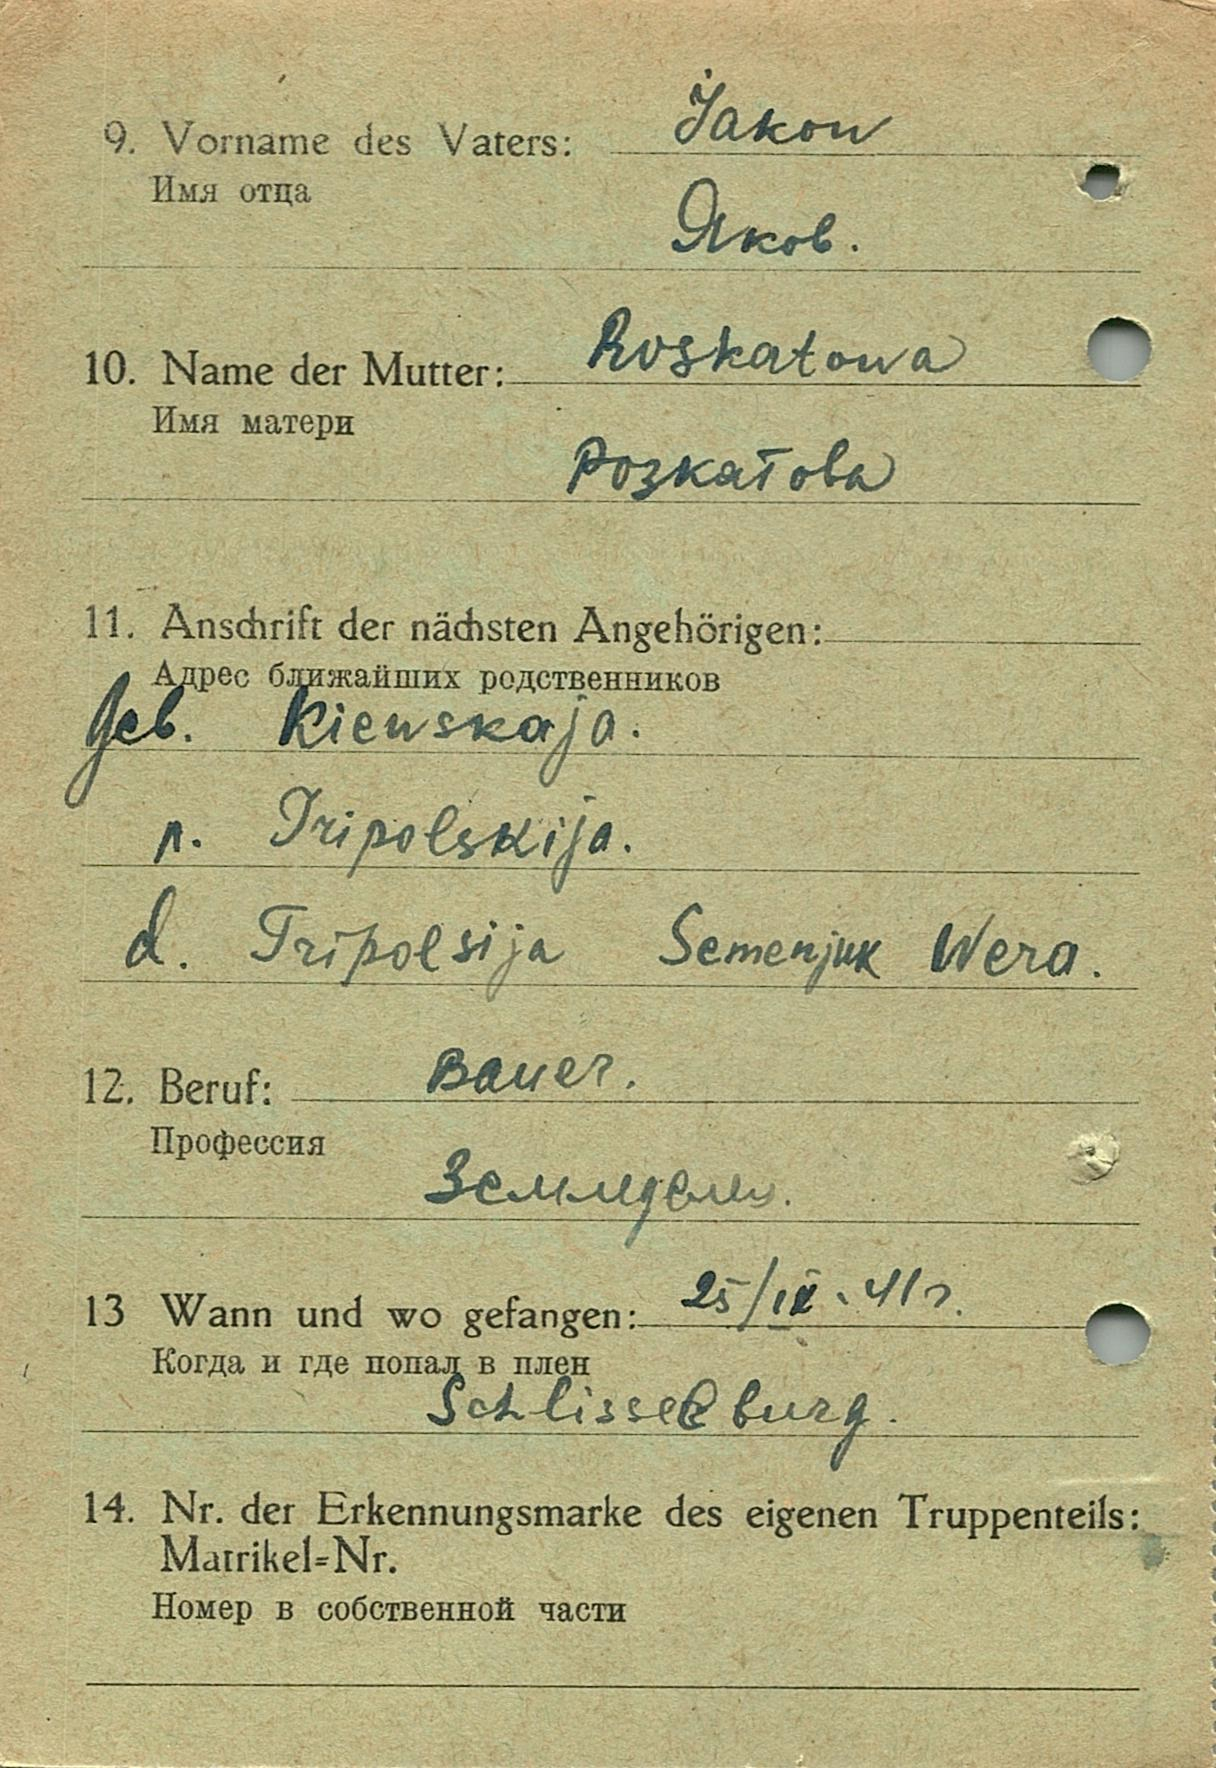 9. Vorname des Vaters: Jakow
Имя отца
Яков.
10. Name der Mutter: Roskatowa
Имя матери
Розкатова
11. Anschrift der nächsten Angehörigen:
Адрес ближайших родственников
Geb. Kiewskaja.
r. Tripolskija.
d. Tripolsija Semenjuk Wera.
12. Beruf: Bauer.
Профессия
13 Wann und wo gefangen: 25/IX.41г.
Когда и где попал в плен
Schlisselburg.
14. Nr. der Erkennungsmarke des eigenen Truppenteils:
Matrikel=Nr.
Номер в собственной части